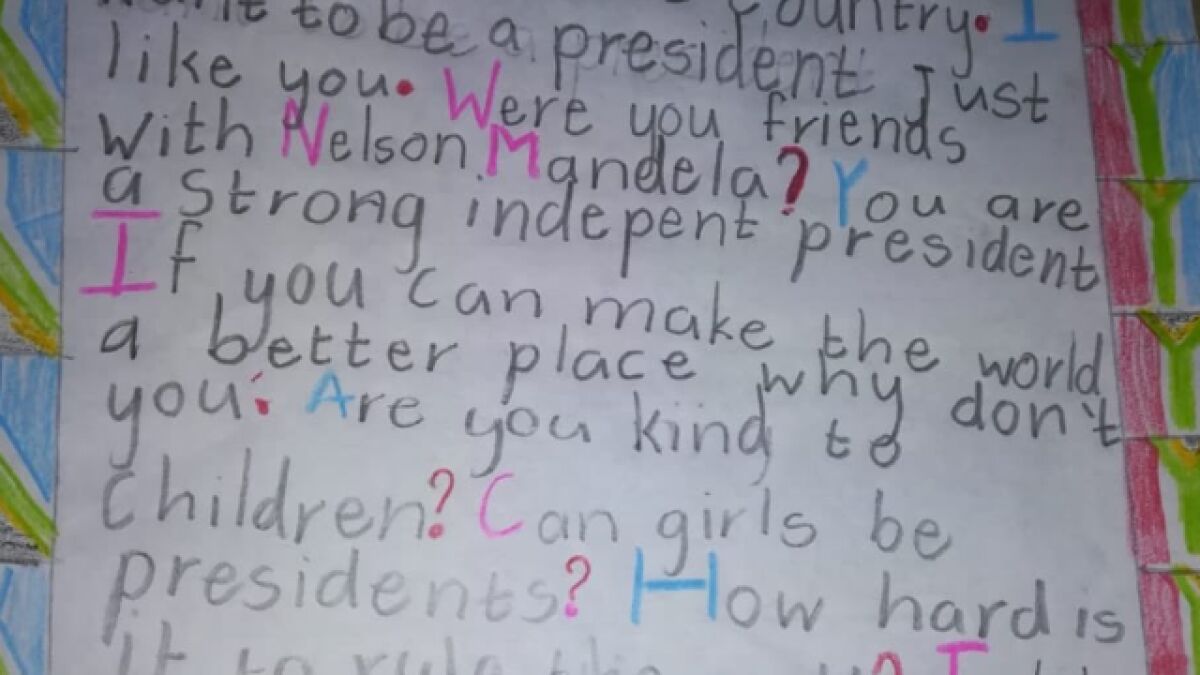 to be a country. I
be a president Just
like you. Were you friends
with Nelson Mandela? You are
a Strong indepent president
If you can make the world
a better place why don't
you. Are you kind to
children? Can girls be
presidents? How hard is
it to rule the